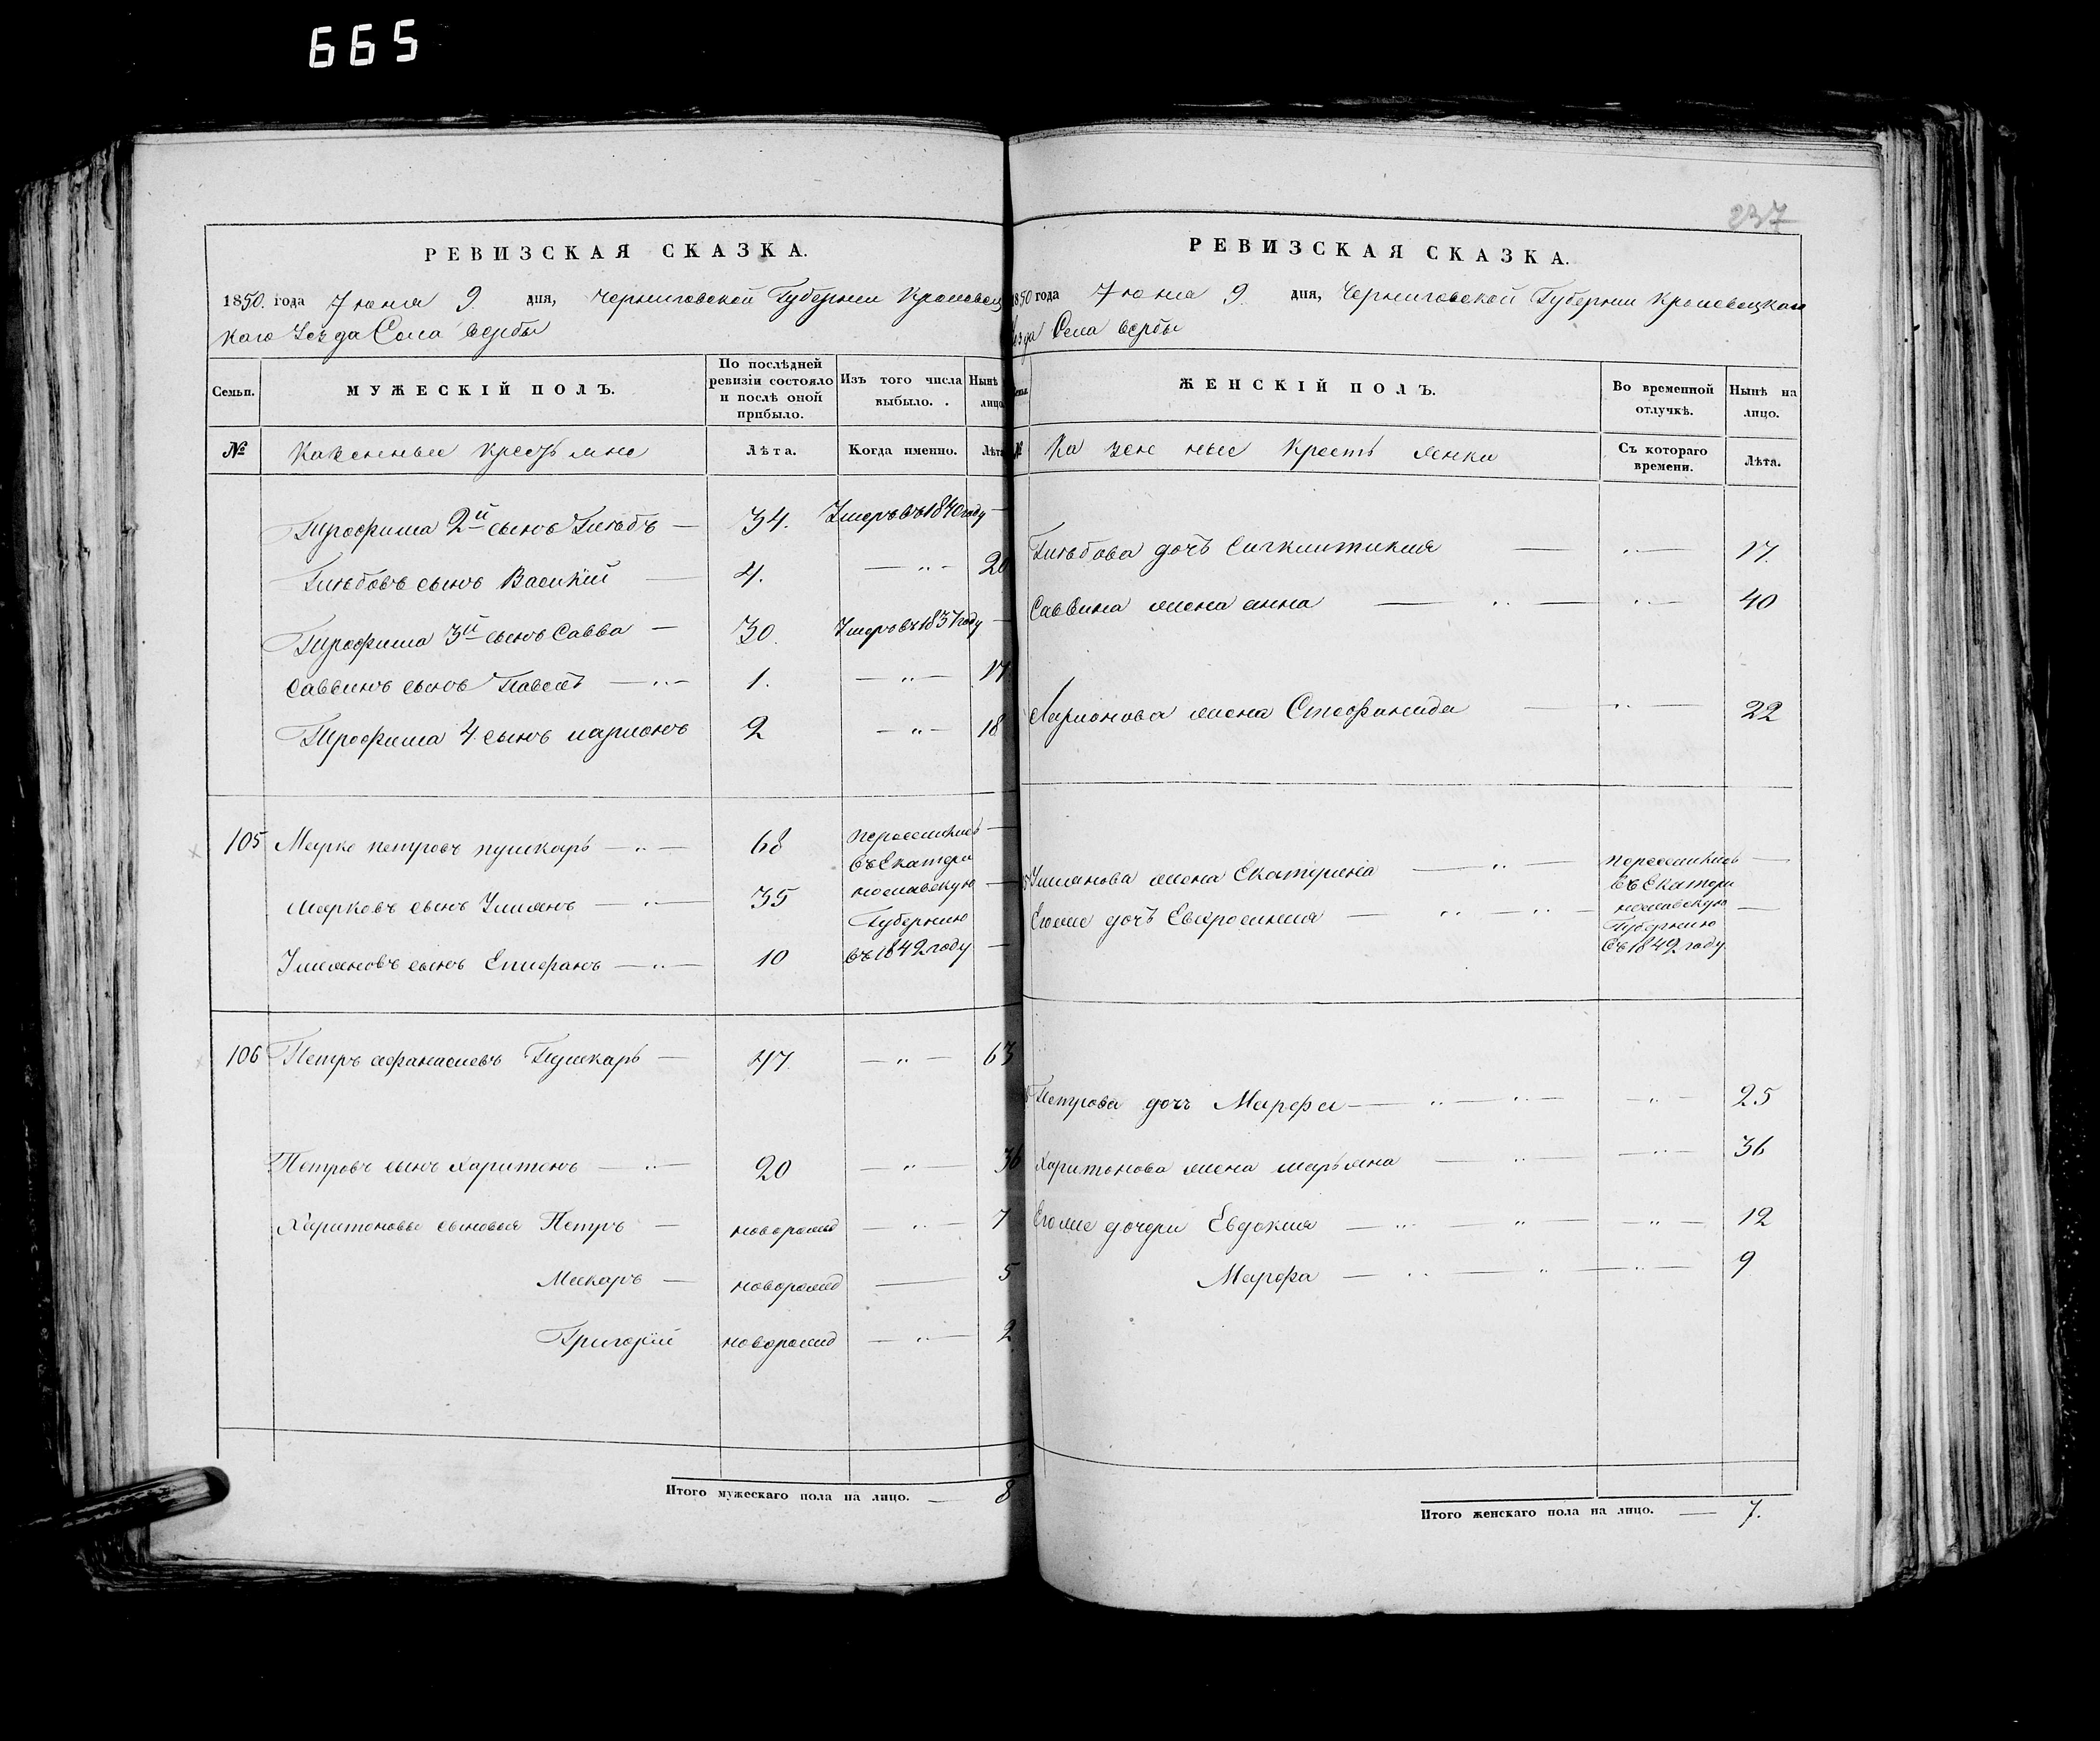 665
237
РЕВИЗСКАЯ СКАЗКА.
1850. года Іюня 9. дня, Черниговской Губерніи Кролевец
каго Уезда Села Вербы
Семьи. МУЖЕСКІЙ ПОЛЪ. По послѣдней ревизіи состояло и послѣ оной прибыло. Изъ того числа выбыло. Нынѣ лицо
№ Казенные Крестьяне Лѣта. Когда именно. Лѣта
Трофима 2й сынъ Глебъ — 34. Умеръ въ 1840 году —
Глебовъ сынъ Василій — 4. — „ — 20
Трофима 3й сынъ Савва — 30. Умеръ въ 1837 году —
Саввинъ сынъ Павелъ — „ — 1. — „ — 17
Трофима 4. сынъ иларионъ 2 — „ — 18
105 Марко петровъ пушкаръ — „ — 68 переселились —
Марковъ сынъ Ульянъ — „ — 35 въ Екатери
нославскую —
Губернію
Ульяновъ сынъ Епифанъ — „ — 10 въ 1842 году —
106 Петръ афанасиевъ Пушкаръ — 47. — „ — 63
Петровъ сынъ Харитонъ — „ — 20 — „ — 36
Харитоновы сыновья Петръ — новорожд — „ — 7
Макаръ — новорожд — 5
Григорій новорожд — „ — 2
Итого мужескаго пола на лицо. — 8
РЕВИЗСКАЯ СКАЗКА.
1850 года Іюня 9. дня, Черниговской Губерніи Кролевецкаго
Уезда Села Вербы
ЖЕНСКІЙ ПОЛЪ. Во временной отлучкѣ. Нынѣ на лицо.
№ Казенные Крестьянки Съ котораго времени. Лѣта.
Глебова дочь — „ — 17.
Саввина жена анна — „ — „ — 40
Ларионова жена Стефанида — „ — 22
Ульянова жена Екатерина — „ — переселились —
въ Екатери
Егоже дочь Евфросиния — „ — „ — нославскую —
Губернію
въ 1842 году
Петрова дочь Марфа — „ — „ — — „ — 25
Харитонова жена марьяна — „ — — „ — 36
Егоже дочери Евдокия — „ — „ — — „ — 12
Марфа — „ — „ — „ — 9
Итого женскаго пола на лицо. — 7.